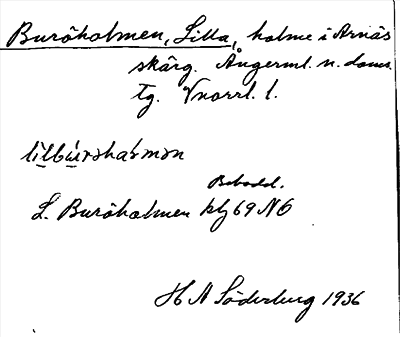 Buröholmen, Lilla, holme i Arnäs
skärg. Ångerml. n. doms.
tg. Vnorrl. l.
lilbúrøhaļmøn
Bebodd.
L. Buröholmen kbl 69 NO
H A Söderberg 1936